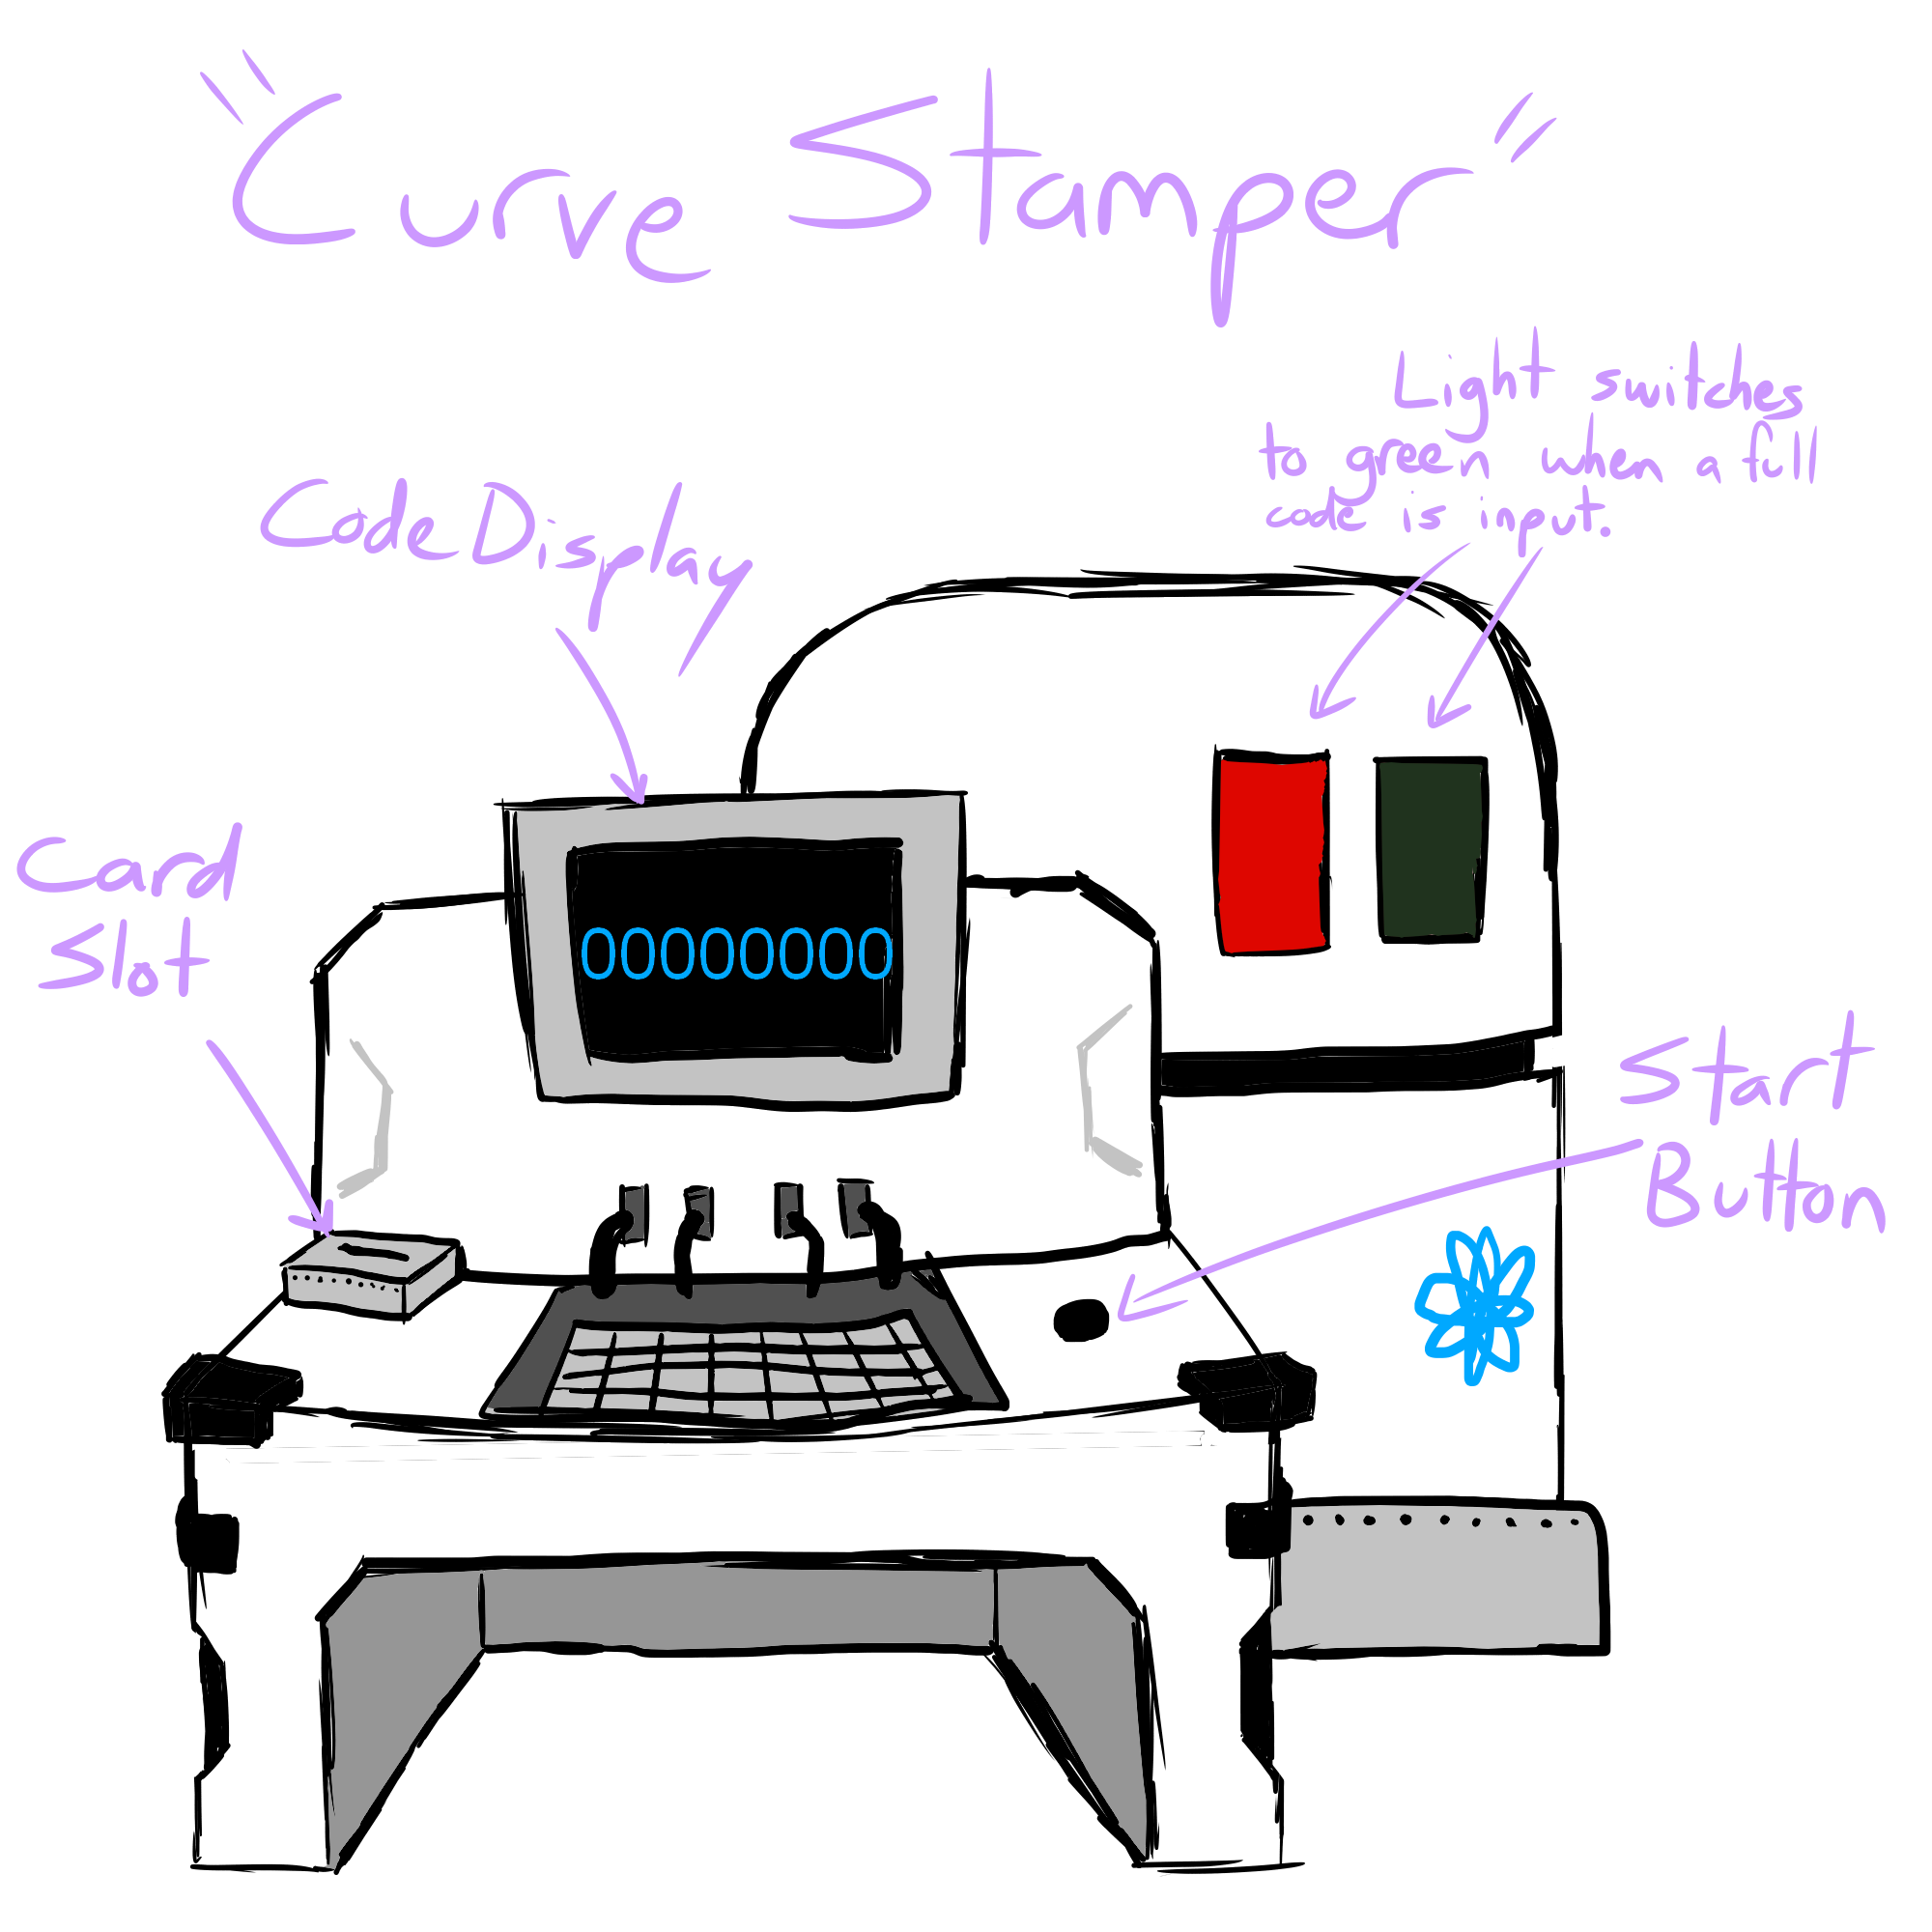 "Curve Stamper"
Light switches
to green when a full
code is input.
Code Display
Card
Slot
00000000
Start
Button